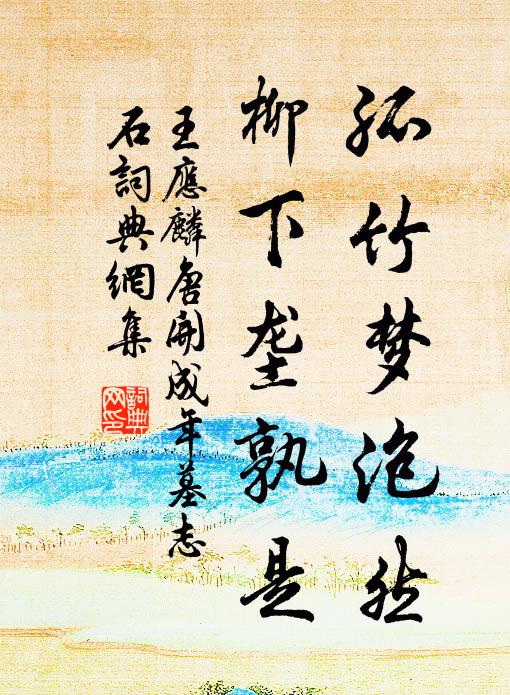 孤竹梦泡然
柳下垄孰是
王應麟唐開成年墓志
石詞典網集
詞典
网印